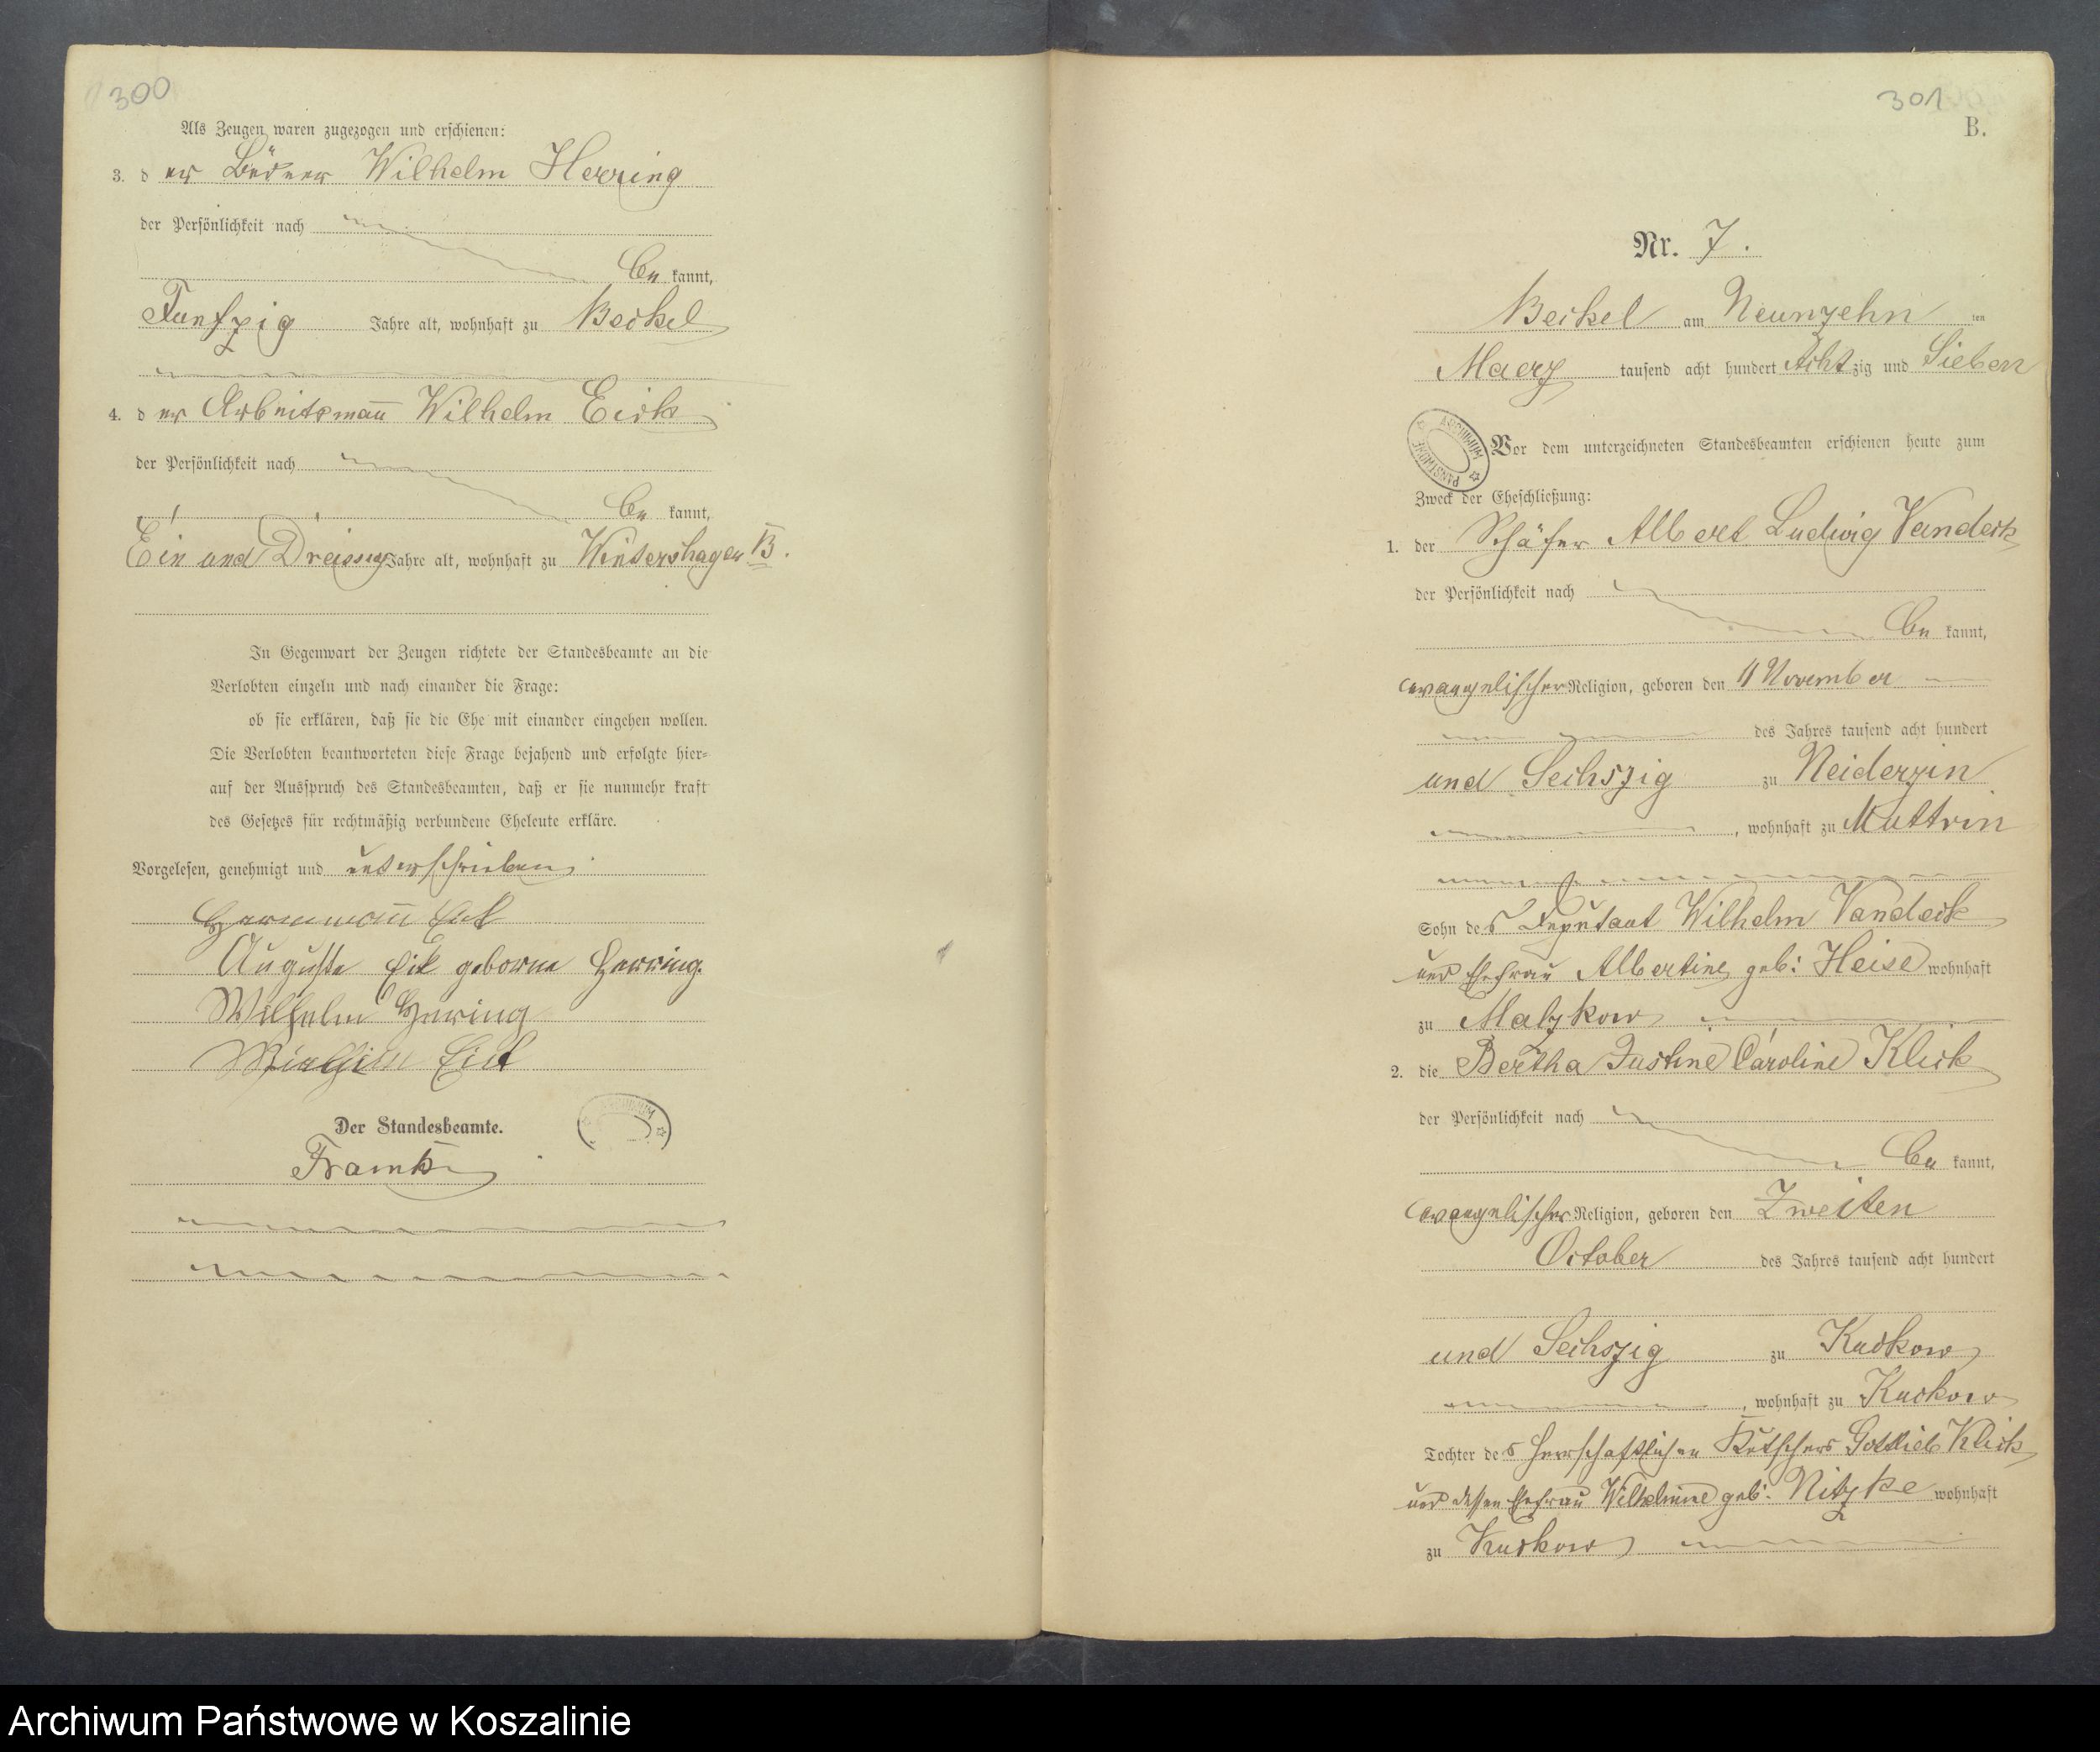 300
Als Zeugen waren zugezogen und erschienen:
3. der Büdner Wilhelm Herring
der Persönlichkeit nach
bekannt,
Funfzig Jahre alt, wohnhaft zu Beckel
4. der Arbeitsmann Wilhelm Eick
der Persönlichkeit nach
bekannt,
Ein und Dreissig Jahre alt, wohnhaft zu Wintershagen B.
In Gegenwart der Zeugen richtete der Standesbeamte an die
Verlobten einzeln und nach einander die Frage:
ob sie erklären, daß sie die Ehe mit einander eingehen wollen.
Die Verlobten beantworteten diese Frage bejahend und erfolgte hier-
auf der Ausspruch des Standesbeamten, daß er sie nunmehr kraft
des Gesetzes für rechtmäßig verbundene Eheleute erkläre.
Vorgelesen, genehmigt und unterschrieben
Hermann Eick
Auguste Eick geborne Herring.
Wilhelm Hering
Wilhelm Eick
Der Standesbeamte.
ARCHIWUM
301
B.
Nr. 7.
Beckel am Neunzehn ten
Maerz tausend acht hundert Achtzig und Sieben
PAŃSTWOWE ARCHIWUM
Vor dem unterzeichneten Standesbeamten erschienen heute zum
Zweck der Eheschließung:
1. der Schäfer Albert Ludwig Vandeck
der Persönlichkeit nach
bekannt,
evangelischer Religion, geboren den 11 November
des Jahres tausend acht hundert
und Sechszig zu Neiderzin
, wohnhaft zu Muttrin
Sohn des Deputant Wilhelm Vandeck
und Ehefrau Albertine geb: Heise wohnhaft
zu Malzkow
2. die Bertha Justine Caroline Klick
der Persönlichkeit nach
bekannt,
evangelischer Religion, geboren den Zweiten
October des Jahres tausend acht hundert
und Sechszig zu Kuckow
, wohnhaft zu Kuckow
Tochter des herrschaftlichen Kutschers Gottlieb Klick
und dessen Ehefrau Wilhelmine geb. Nitzke wohnhaft
zu Kuckow
Archiwum Państwowe w Koszalinie